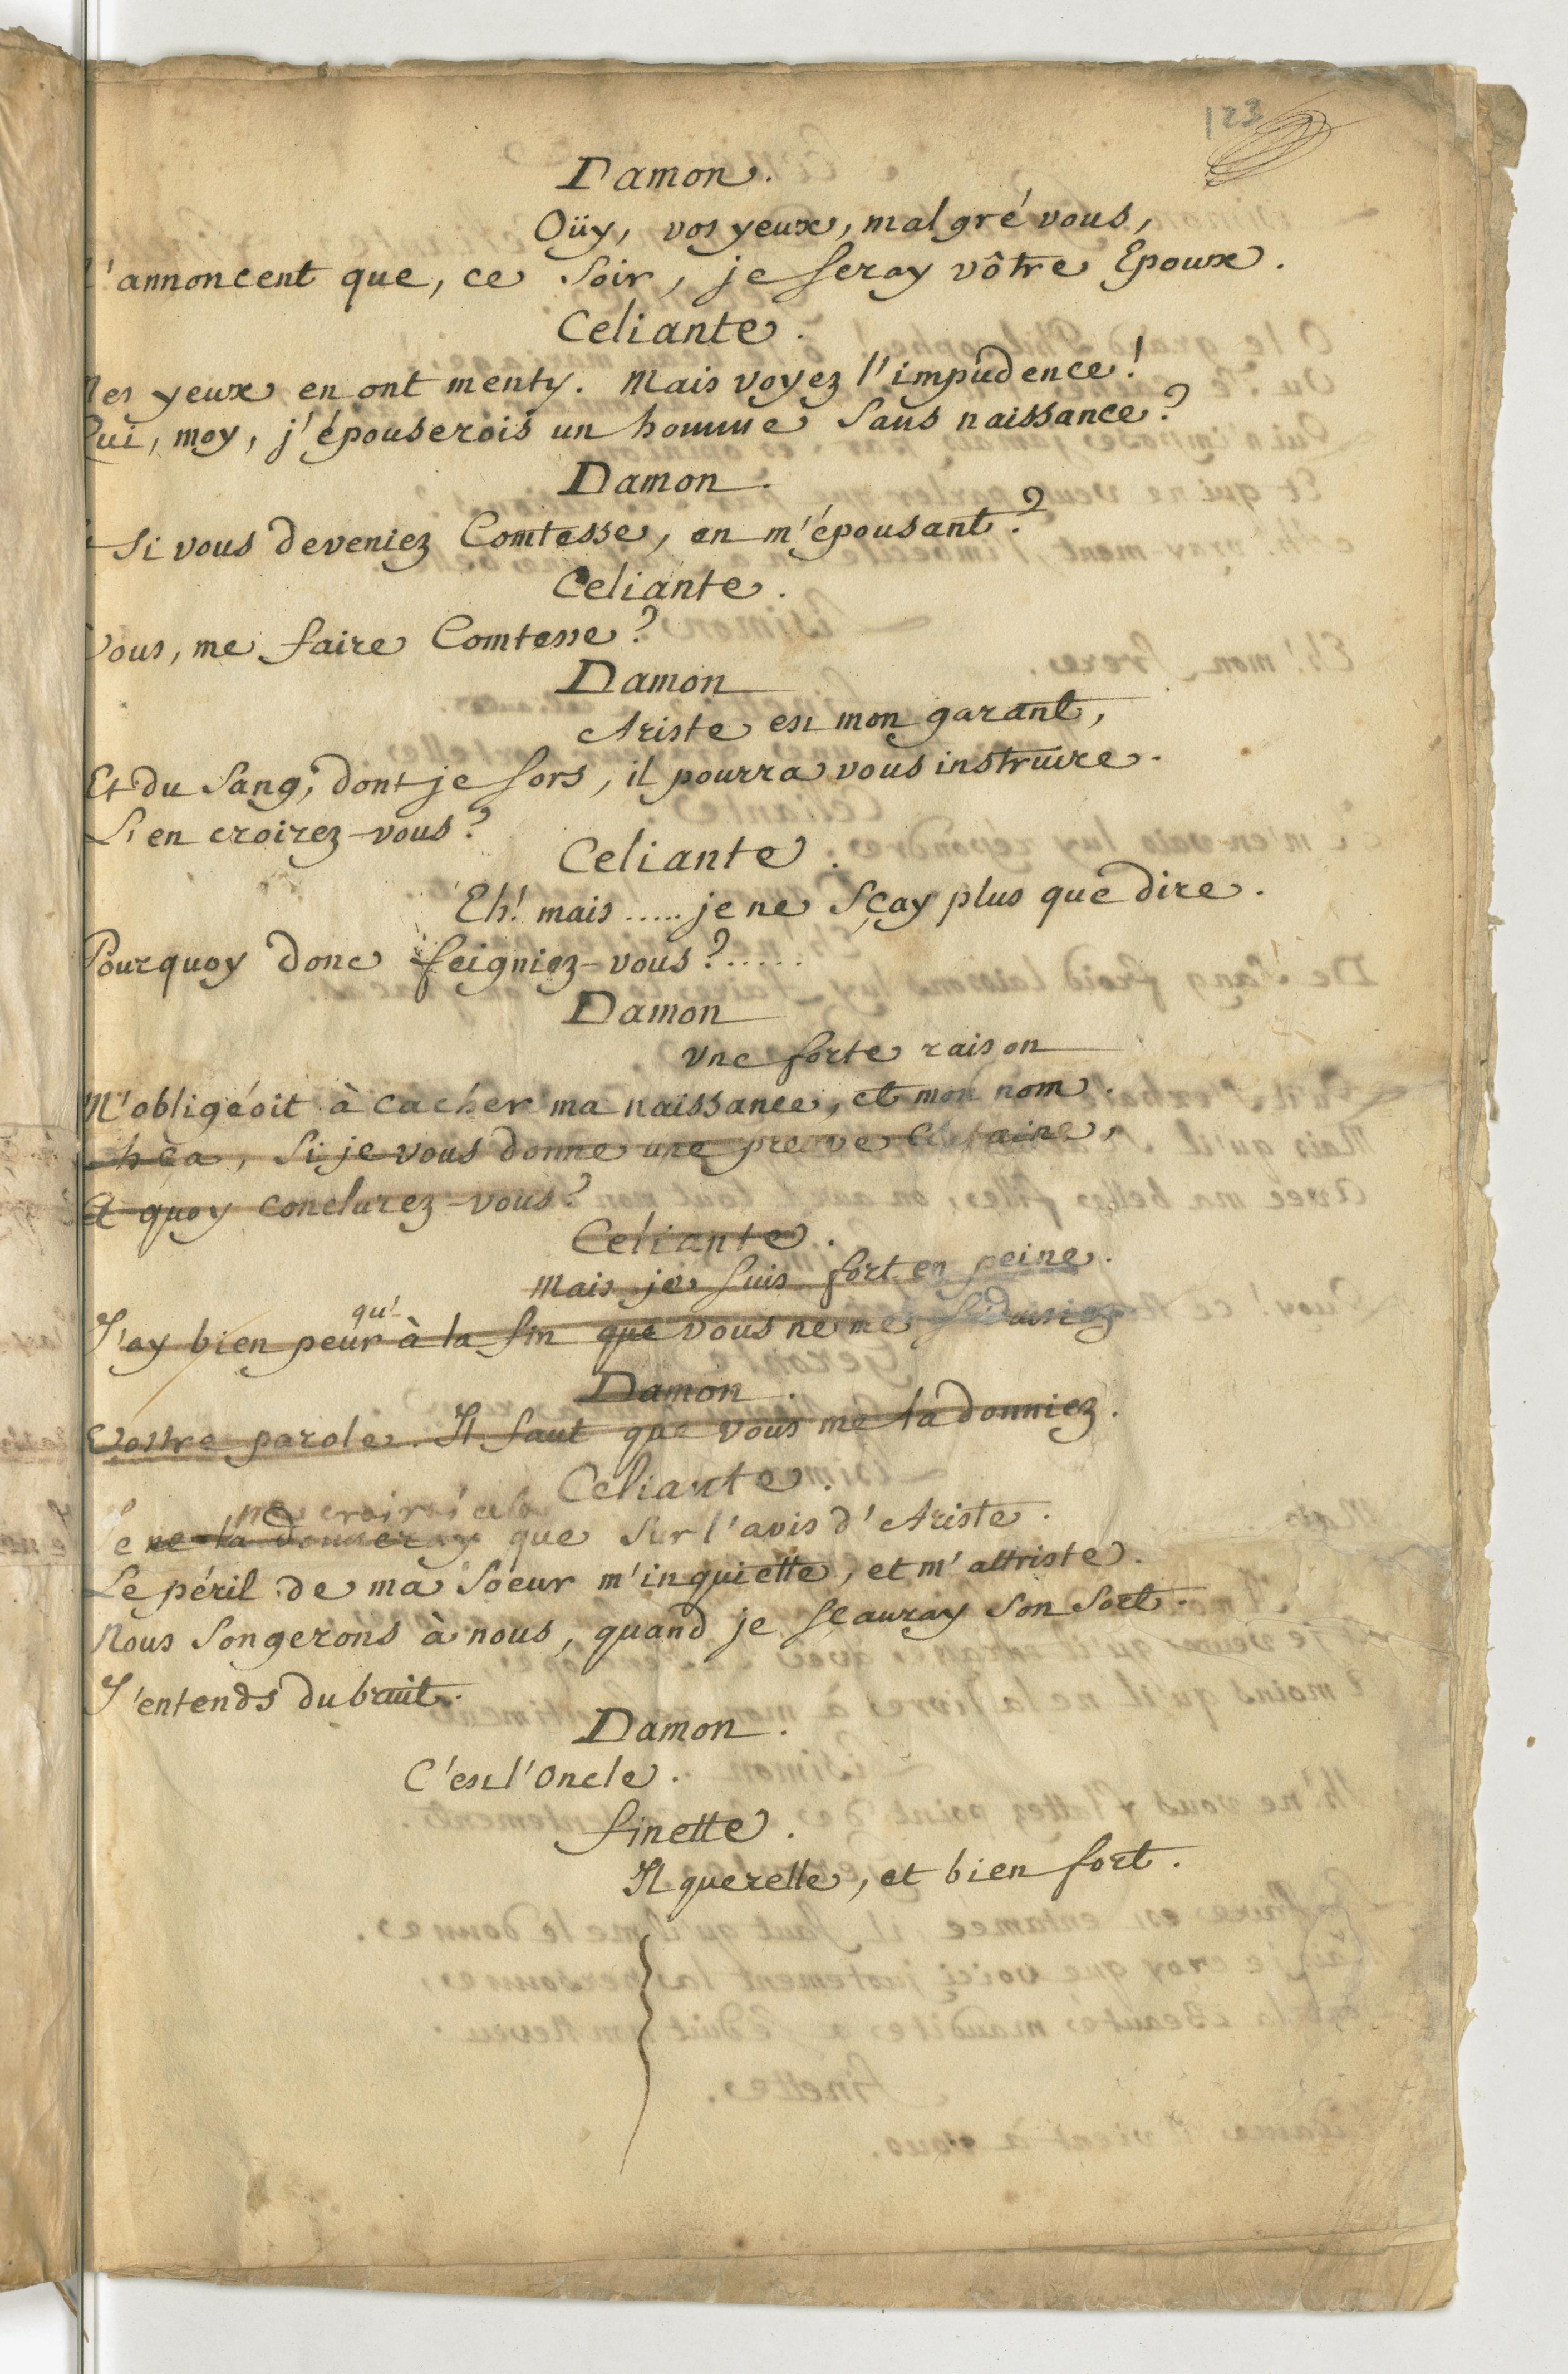 123
Damon.
Oüy, vos yeux, malgré vous,
M'annoncent que, ce soir, je seray vôtre Epoux.
Celiante.
Mes yeux en ont menty. Mais voyez l'impudence!
Qui, moy, j'épouserois un homme sans naissance?
Damon.
Si vous deveniez Comtesse, en m'épousant?
Celiante.
Vous, me faire Comtesse?
Damon
Ariste est mon garant,
Et du sang, dont je sors, il pourra vous instruire.
L'en croirez-vous?
Celiante.
Eh! mais ..... je ne sçay plus que dire.
Pourquoy donc feigniez-vous? .....
Damon
Une forte raison
M'obligeoit à cacher ma naissance, et mon nom.
ça, si je vous donne une preuve certaine,
A quoy conclurez-vous?
Celiante.
Mais je suis fort en peine.
qu'
J'ay bien peur à la fin que vous ne me séduisiez
Damon.
Vostre parole. Il faut que vous me la donniez.
Celiante.
ne croirai cela
Je ne la donneray que sur l'avis d'Ariste.
Le péril de ma soeur m'inquiette, et m'attriste.
Nous songerons à nous, quand je sçauray son sort.
J'entends du bruit.
Damon.
C'est l'Oncle.
Finette.
Il querelle, et bien fort.